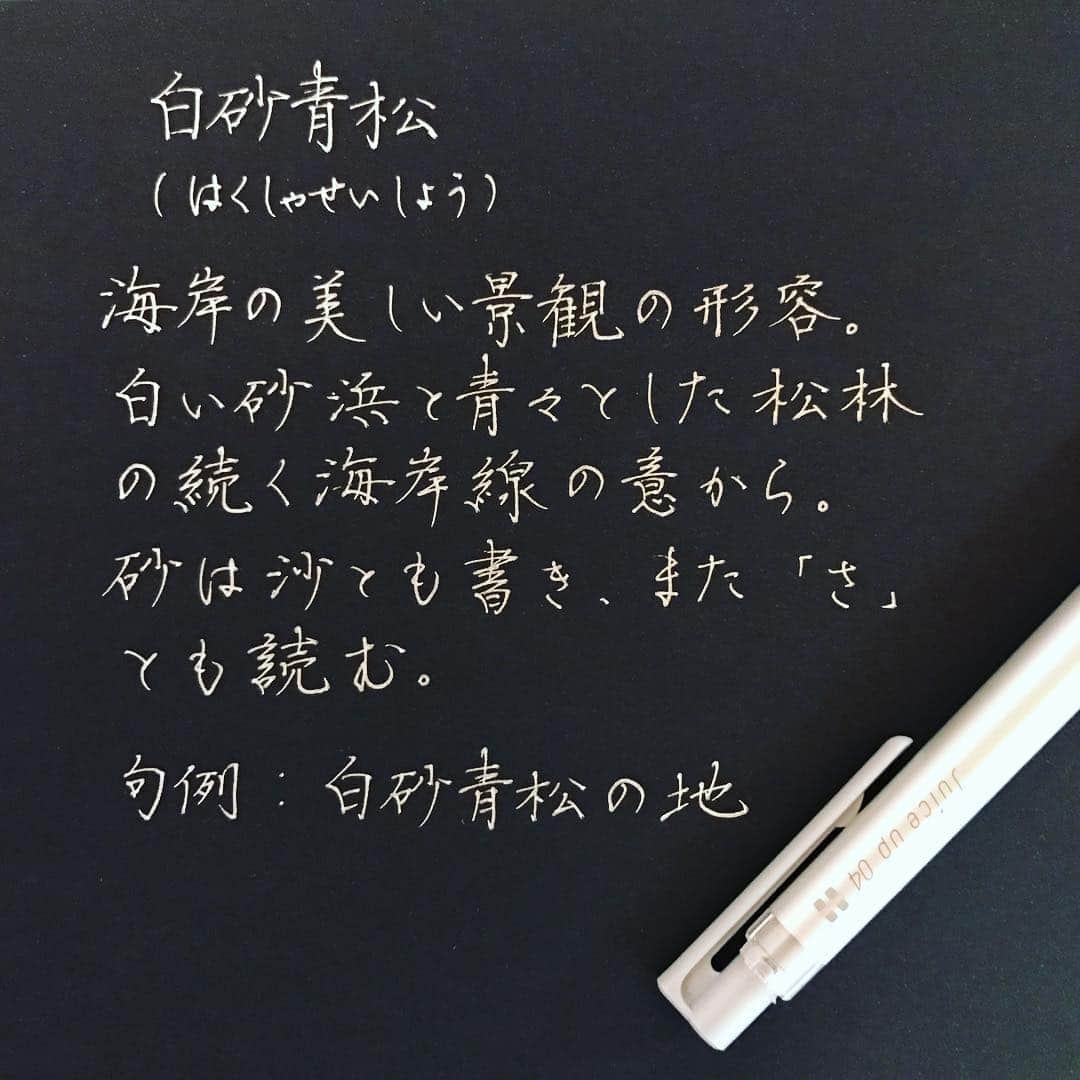 白砂青松
(はくしゃせいしょう)
海岸の美しい景観の形容。
白い砂浜と青々とした松林
の続く海岸線の意から。
砂は沙とも書き、また「さ」
とも読む。
句例:白砂青松の地
Juice up 04